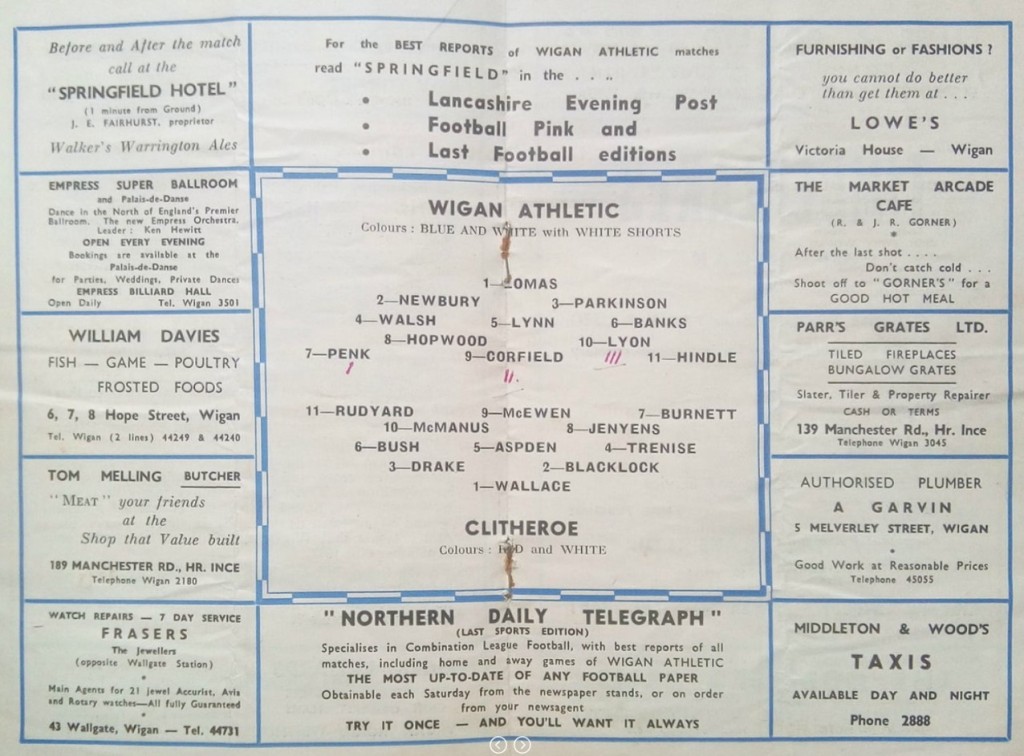 Before and After the match
call at the
"SPRINGFIELD HOTEL"
(1 minute from Ground)
J. E. FAIRHURST, proprietor
Walker's Warrington Ales
For the BEST REPORTS of WIGAN ATHLETIC matches
read "SPRINGFIELD" in the . . . .
• Lancashire Evening Post
• Football Pink and
• Last Football editions
FURNISHING or FASHIONS ?
you cannot do better
than get them at . . .
LOWE'S
Victoria House — Wigan
EMPRESS SUPER BALLROOM
and Palais-de-Danse
Dance in the North of England's Premier
Ballroom. The new Empress Orchestra.
Leader : Ken Hewitt
OPEN EVERY EVENING
Bookings are available at the
Palais-de-Danse
for Parties, Weddings, Private Dances
EMPRESS BILLIARD HALL
Open Daily Tel. Wigan 3501
WILLIAM DAVIES
FISH — GAME — POULTRY
FROSTED FOODS
6, 7, 8 Hope Street, Wigan
Tel. Wigan (2 lines) 44249 & 44240
TOM MELLING BUTCHER
"MEAT" your friends
at the
Shop that Value built
189 MANCHESTER RD., HR. INCE
Telephone Wigan 2180
WATCH REPAIRS — 7 DAY SERVICE
FRASERS
The Jewellers
(opposite Wallgate Station)
•
Main Agents for 21 jewel Accurist, Avia
and Rotary watches—All fully Guaranteed
•
43 Wallgate, Wigan — Tel. 44731
WIGAN ATHLETIC
Colours : BLUE AND WHITE with WHITE SHORTS
1—LOMAS
2—NEWBURY 3—PARKINSON
4—WALSH 5—LYNN 6—BANKS
8—HOPWOOD 10—LYON
7—PENK 9—CORFIELD III 11—HINDLE
I II
11—RUDYARD 9—McEWEN 7—BURNETT
10—McMANUS 8—JENYENS
6—BUSH 5—ASPDEN 4—TRENISE
3—DRAKE 2—BLACKLOCK
1—WALLACE
CLITHEROE
Colours : RED and WHITE
"NORTHERN DAILY TELEGRAPH"
(LAST SPORTS EDITION)
Specialises in Combination League Football, with best reports of all
matches, including home and away games of WIGAN ATHLETIC
THE MOST UP-TO-DATE OF ANY FOOTBALL PAPER
Obtainable each Saturday from the newspaper stands, or on order
from your newsagent
TRY IT ONCE — AND YOU'LL WANT IT ALWAYS
THE MARKET ARCADE
CAFE
(R. & J. R. GORNER)
*
After the last shot . . . .
Don't catch cold . . .
Shoot off to "GORNER'S" for a
GOOD HOT MEAL
PARR'S GRATES LTD.
TILED FIREPLACES
BUNGALOW GRATES
Slater, Tiler & Property Repairer
CASH OR TERMS
139 Manchester Rd., Hr. Ince
Telephone Wigan 3045
AUTHORISED PLUMBER
A GARVIN
5 MELVERLEY STREET, WIGAN
•
Good Work at Reasonable Prices
Telephone 45055
MIDDLETON & WOOD'S
TAXIS
AVAILABLE DAY AND NIGHT
Phone 2888